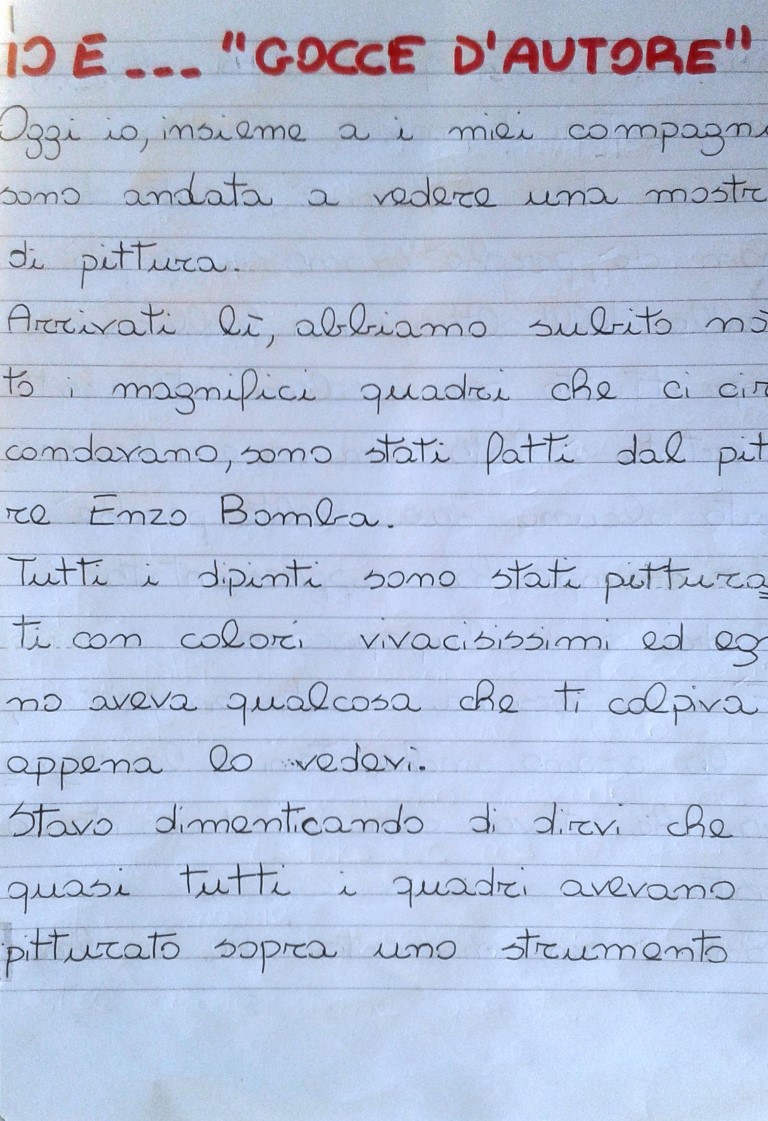 IO E --- "GOCCE D'AUTORE"
Oggi io, insieme a i miei compagni
sono andata a vedere una mostr
di pittura.
Arrivati lì, abbiamo subito no
to i magnifici quadri che ci cir
condavano, sono stati fatti dal pit
re Enzo Bomba.
Tutti i dipinti sono stati pittura
ti con colori vivacisissimi ed og
no aveva qualcosa che ti colpiva
appena lo vedevi.
Stavo dimenticando di dirvi che
quasi tutti i quadri avevano
pitturato sopra uno strumento